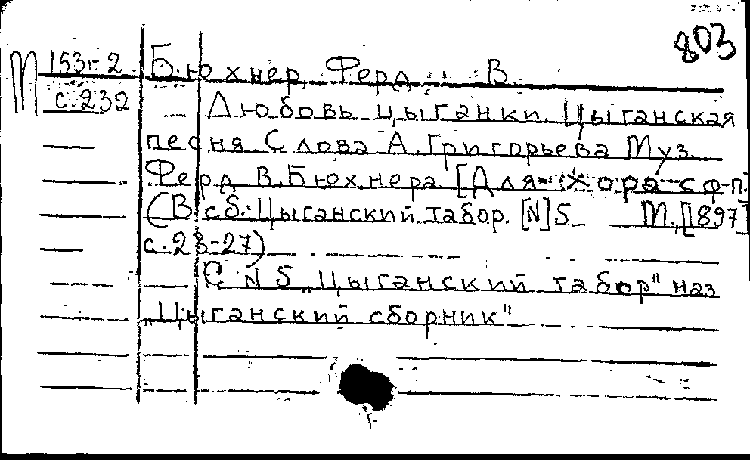 803
М 153г.2 Бюхнер, Ферд. В.
с.232 Любовь цыганки. Цыганская
песня Слова А. Григорьева Муз.
Ферд. В. Бюхнера [Для хора с ф-п.]
(В сб.: Цыганский табор. [N] 5 М., [1897]
с. 23-27)
С N 5 „Цыганский табор" наз.
„Цыганский сборник"